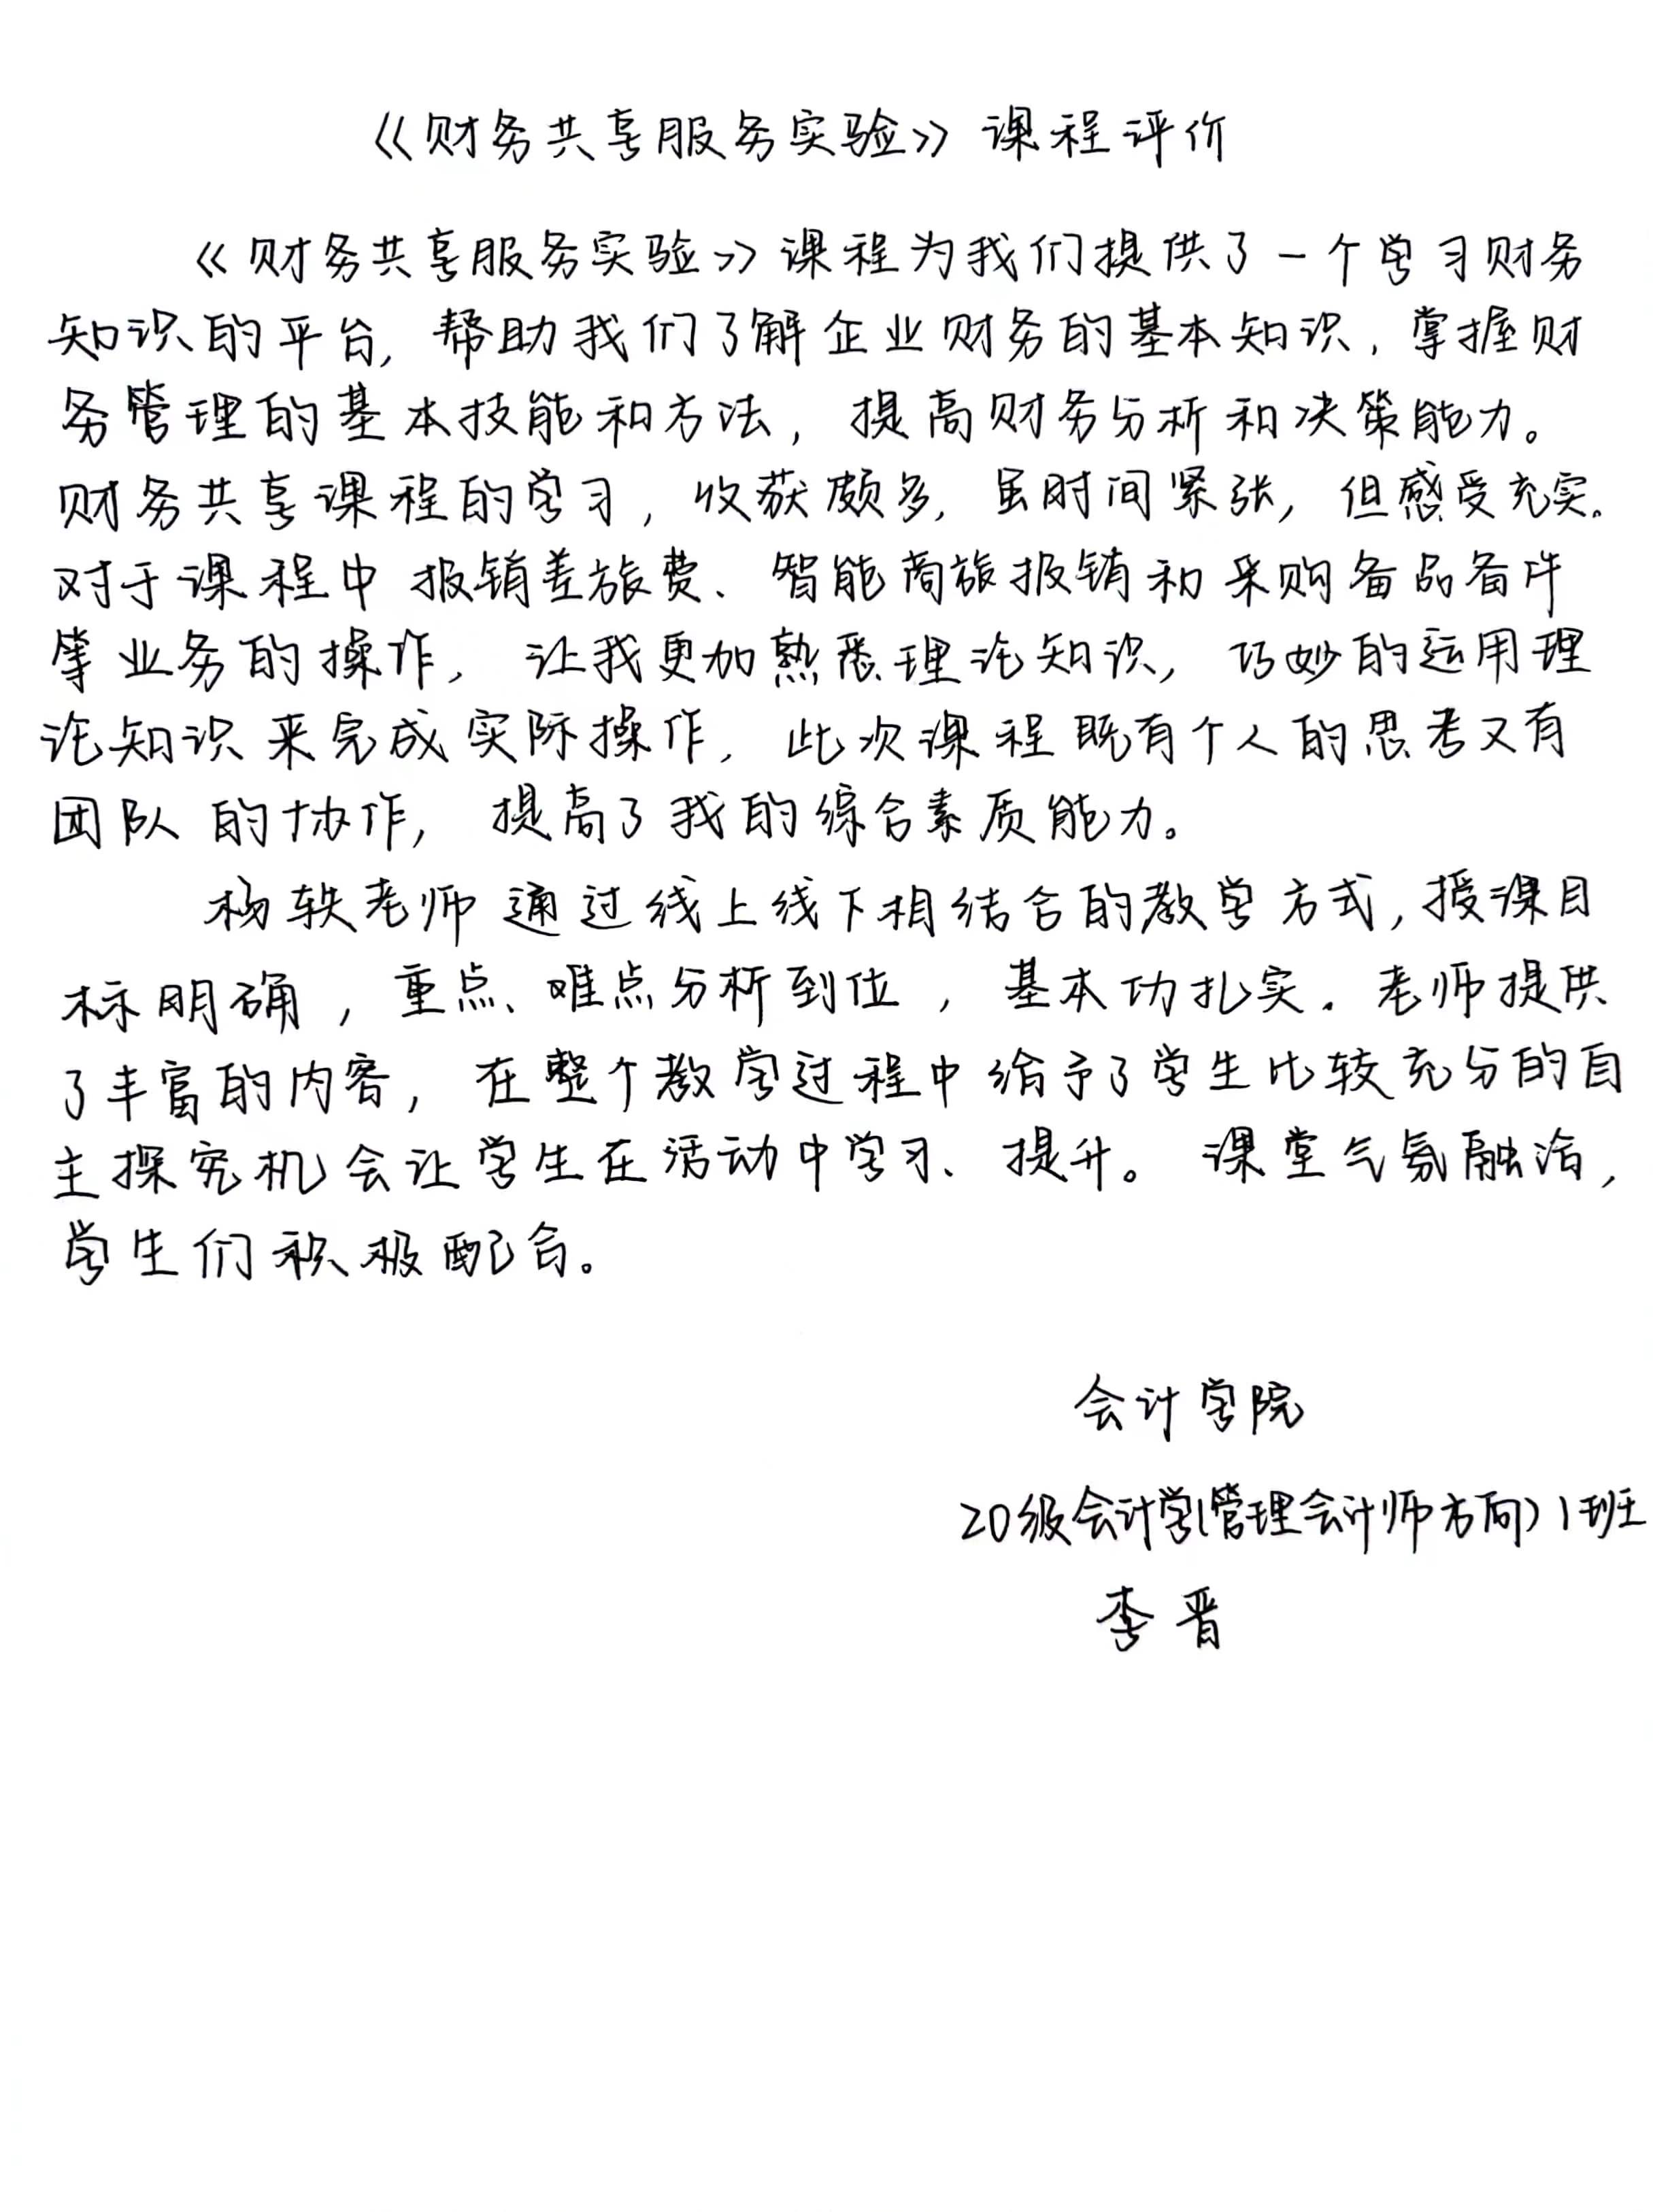 《财务共享服务实验》课程评价
《财务共享服务实验》课程为我们提供了一个学习财务
知识的平台,帮助我们了解企业财务的基本知识,掌握财
务管理的基本技能和方法,提高财务分析和决策能力。
财务共享课程的学习,收获颇多,虽时间紧张,但感受充实。
对于课程中报销差旅费、智能商旅报销和采购备品备件
等业务的操作,让我更加熟悉理论知识,巧妙的运用理
论知识来完成实际操作,此次课程既有个人的思考又有
团队的协作,提高了我的综合素质能力。
杨轶老师通过线上线下相结合的教学方式,授课目
标明确,重点、难点分析到位,基本功扎实。老师提供
了丰富的内容,在整个教学过程中给予了学生比较充分的自
主探究机会让学生在活动中学习、提升。课堂气氛融洽,
学生们积极配合。
会计学院
20级会计学(管理会计师方向)1班
李晋